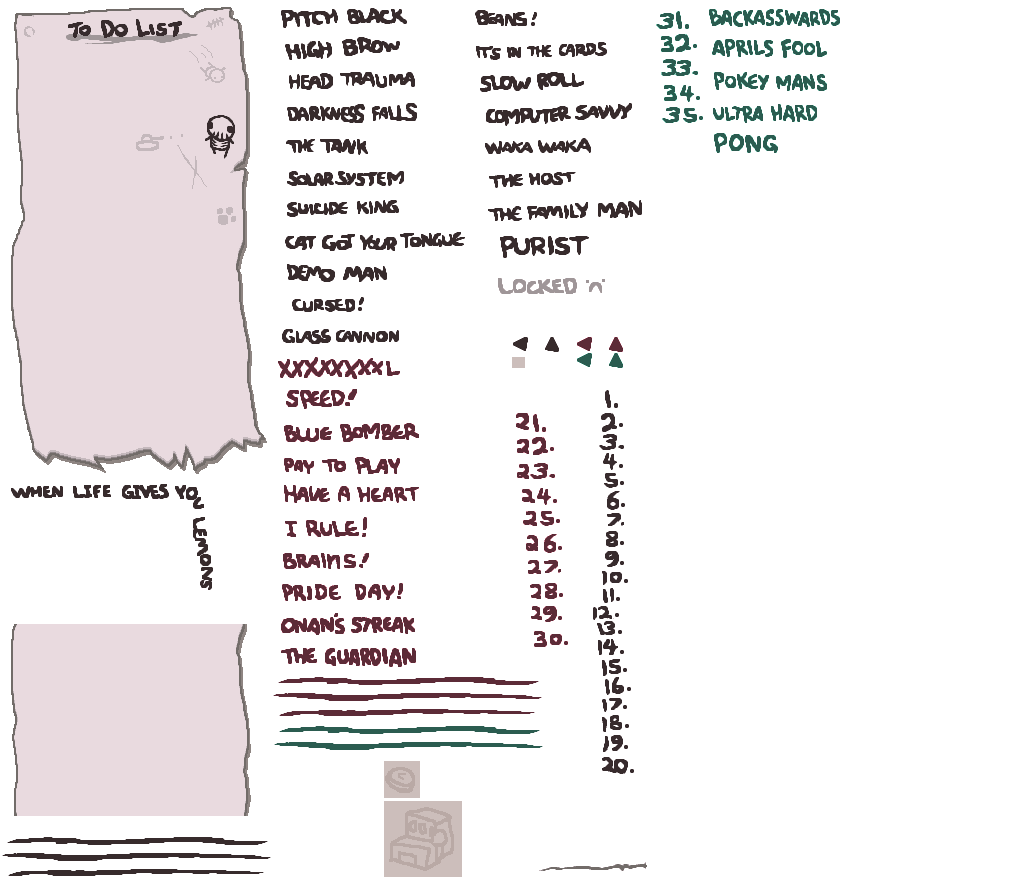 TO DO LIST
PITCH BLACK
HIGH BROW
HEAD TRAUMA
DARKNESS FALLS
THE TANK
SOLAR SYSTEM
SUICIDE KING
CAT GOT YOUR TONGUE
DEMO MAN
CURSED!
GLASS CANNON
XXXXXXXXL
SPEED!
BLUE BOMBER
PAY TO PLAY
HAVE A HEART
I RULE!
BRAINS!
PRIDE DAY!
ONAN'S STREAK
THE GUARDIAN
BEANS!
IT'S IN THE CARDS
SLOW ROLL
COMPUTER SAVVY
WAKA WAKA
THE HOST
THE FAMILY MAN
PURIST
LOCKED :n:
21.
22.
23.
24.
25.
26.
27.
28.
29.
30.
1.
2.
3.
4.
5.
6.
7.
8.
9.
10.
11.
12.
13.
14.
15.
16.
17.
18.
19.
20.
31.
32.
33.
34.
35.
BACKASSWARDS
APRILS FOOL
POKEY MANS
ULTRA HARD
PONG
WHEN LIFE GIVES YOU LEMONS